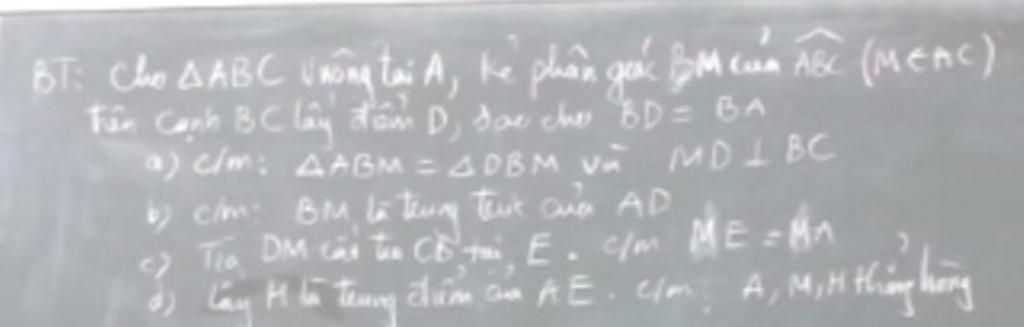 BT: Cho △ABC vuông tại A, kẻ phân giác BM của ABC (M∈AC)
trên cạnh BC lấy điểm D, sao cho BD = BA
a) c/m: △ABM = △DBM và MD ⊥ BC
b) c/m: BM là trung trực của AD
c) Tia DM cắt tia tại E. c/m ME = MA
d) Lấy H là trung điểm của AE. c/m: A, M, H thẳng hàng